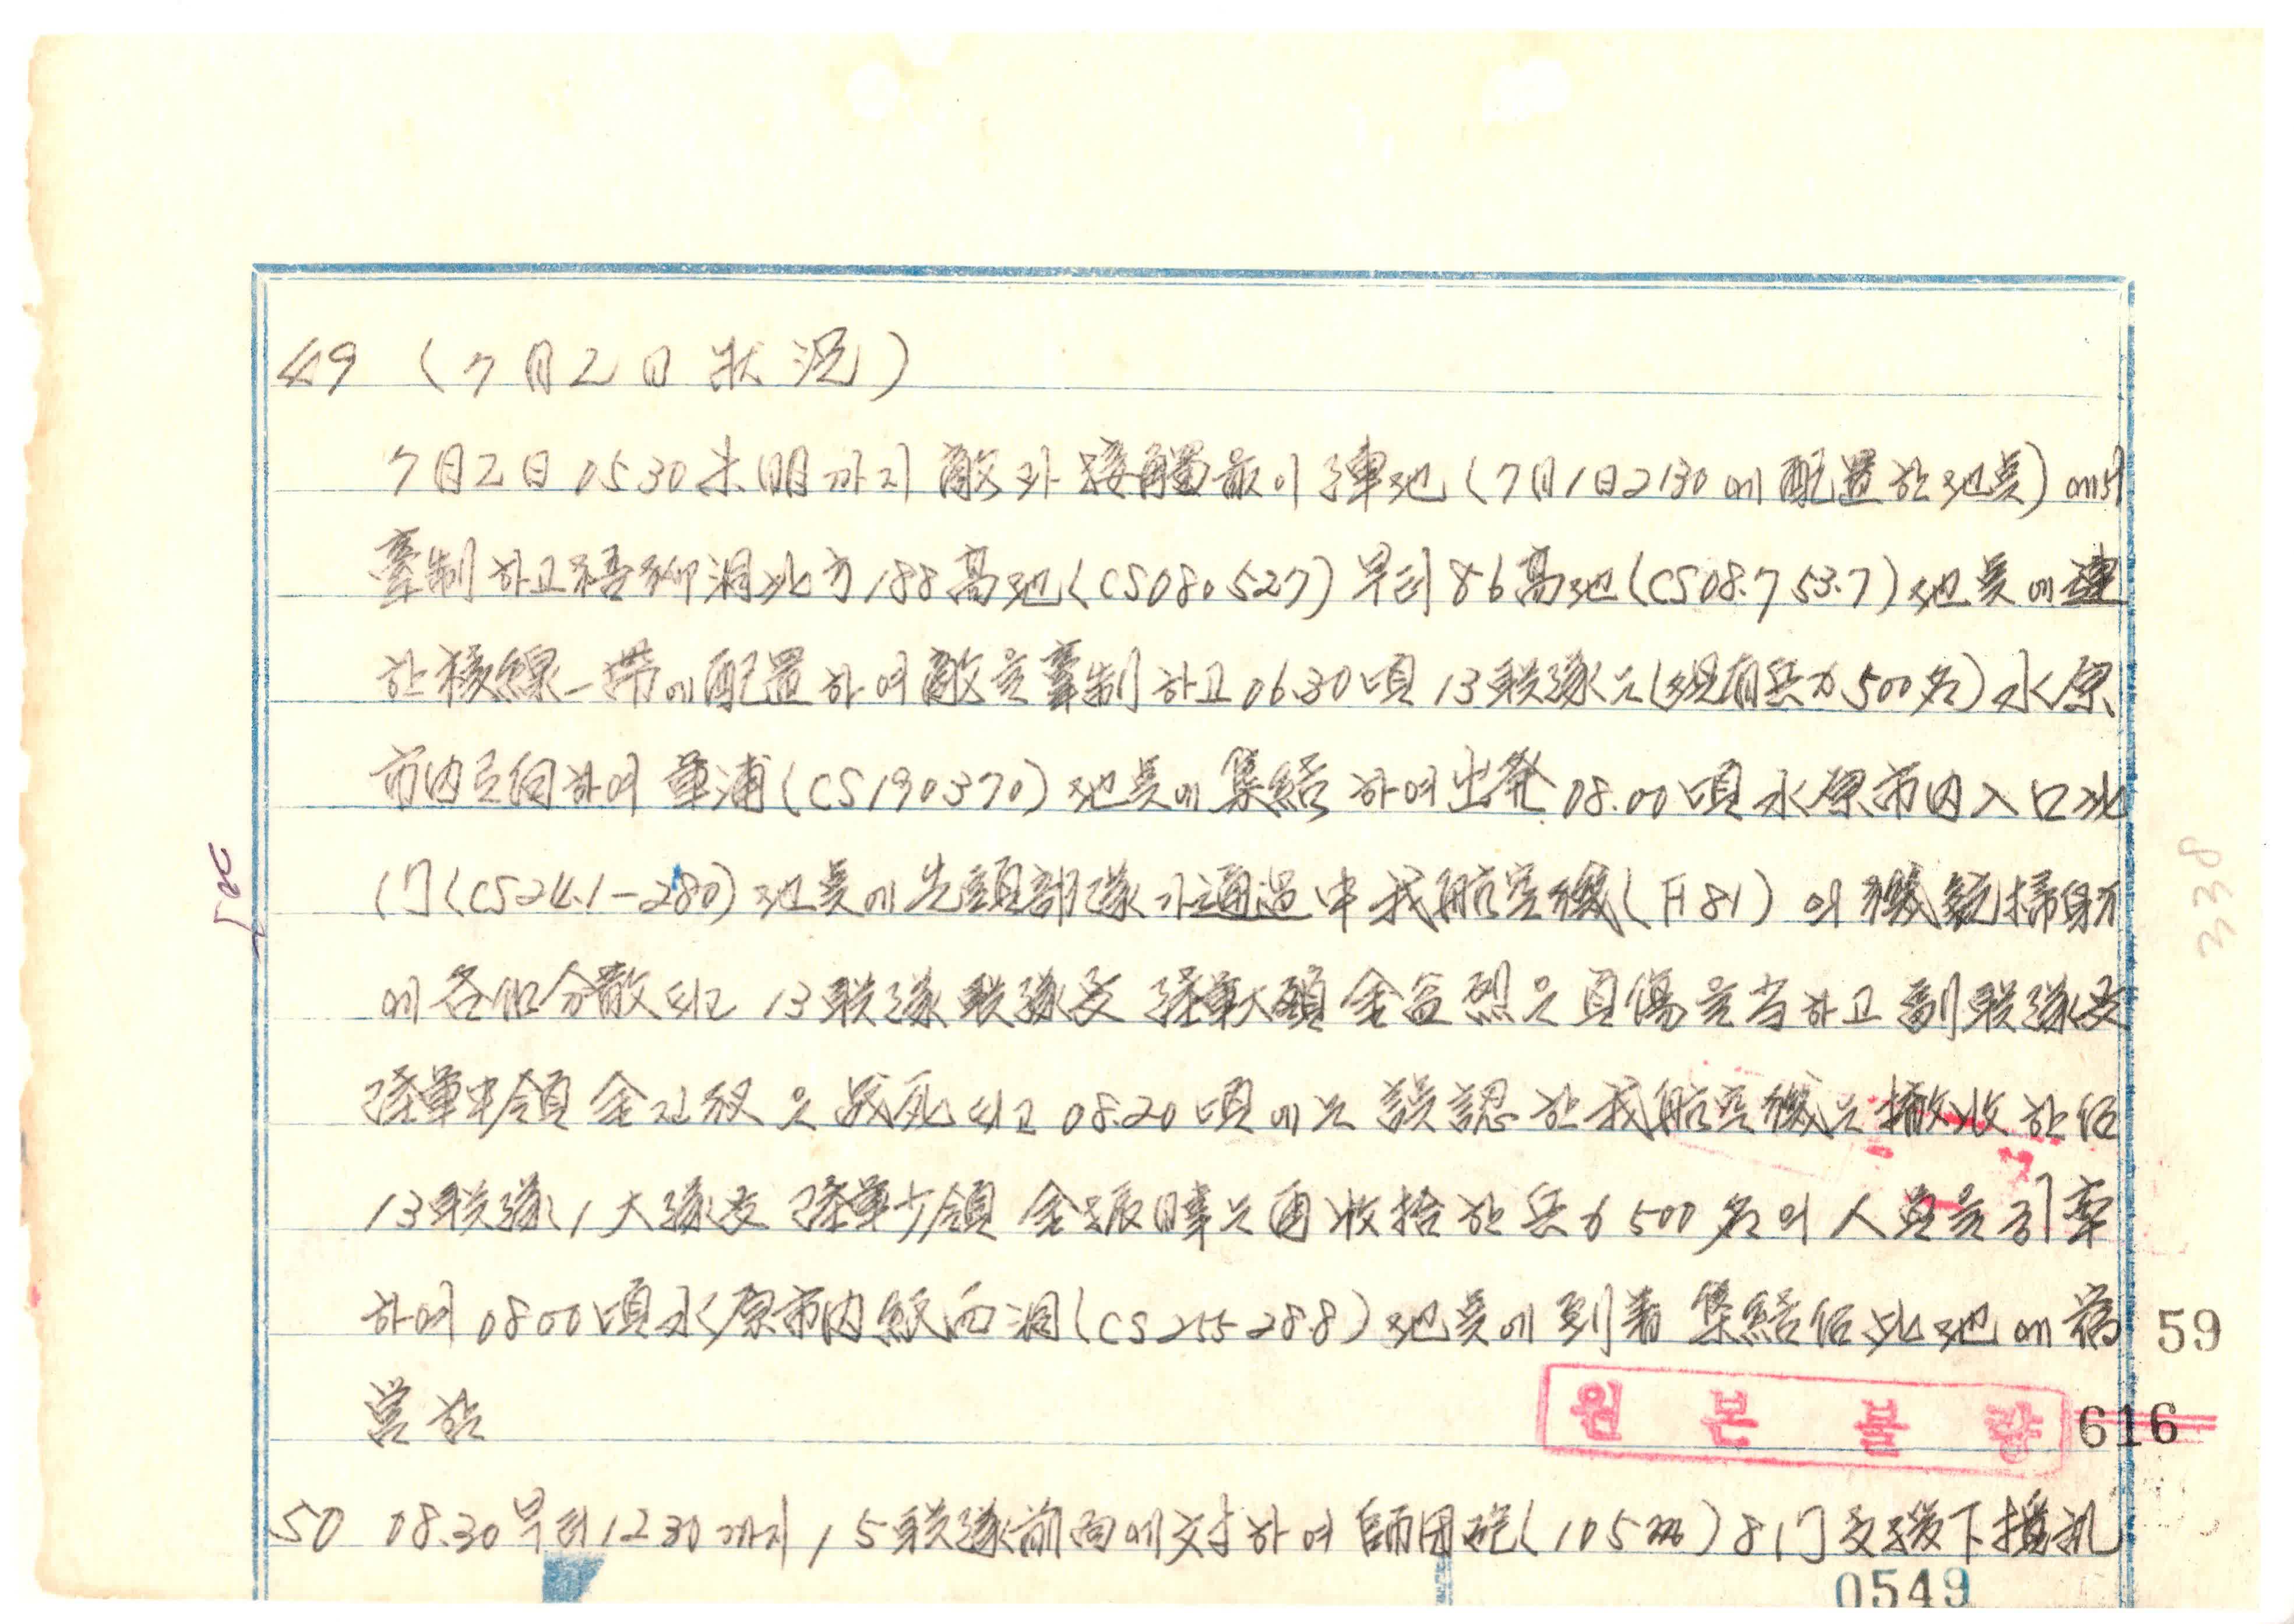 49 (7月2日 狀況)
7月2日 05.30 未明까지 敵과 接觸 없이 陣地 (7月1日 2130에 配置한 地点)에서
牽制하고 北方 188高地(CS080.527) 부터 86高地(CS08.7 53.7) 地点에 連
한 稜線一帶에 配置하여 敵을 牽制하고 06.30頃 13联隊은 (現有兵力 500名) 水原
市内로 向하여 軍浦(CS190370) 地点에 集結하여 出発 08.00頃 水原市内入口 北
门(CS24.1-280) 地点에 先頭部隊가 通過中 我航空機(F81)의 機銃掃射
에 各个分散되고 13联隊 联隊長 陸軍大領 金益烈은 負傷을 当하고 副联隊長
陸軍中領 金 은 战死되고 08.20頃에는 誤認한 我航空機는 撤收한 后
13联隊 1大隊長 陸軍少領 金振暐는 收拾한 兵力 500名의 人員을 引率
하여 0800頃 水原市内 洞(CS255-288) 地点에 到着 集結 后 此地에 宿
営함
원본불량
50 08.30부터 1230까지 15联隊 前面에 対하여 師団砲(105㎜) 8门 支援下
59
616
0549
338